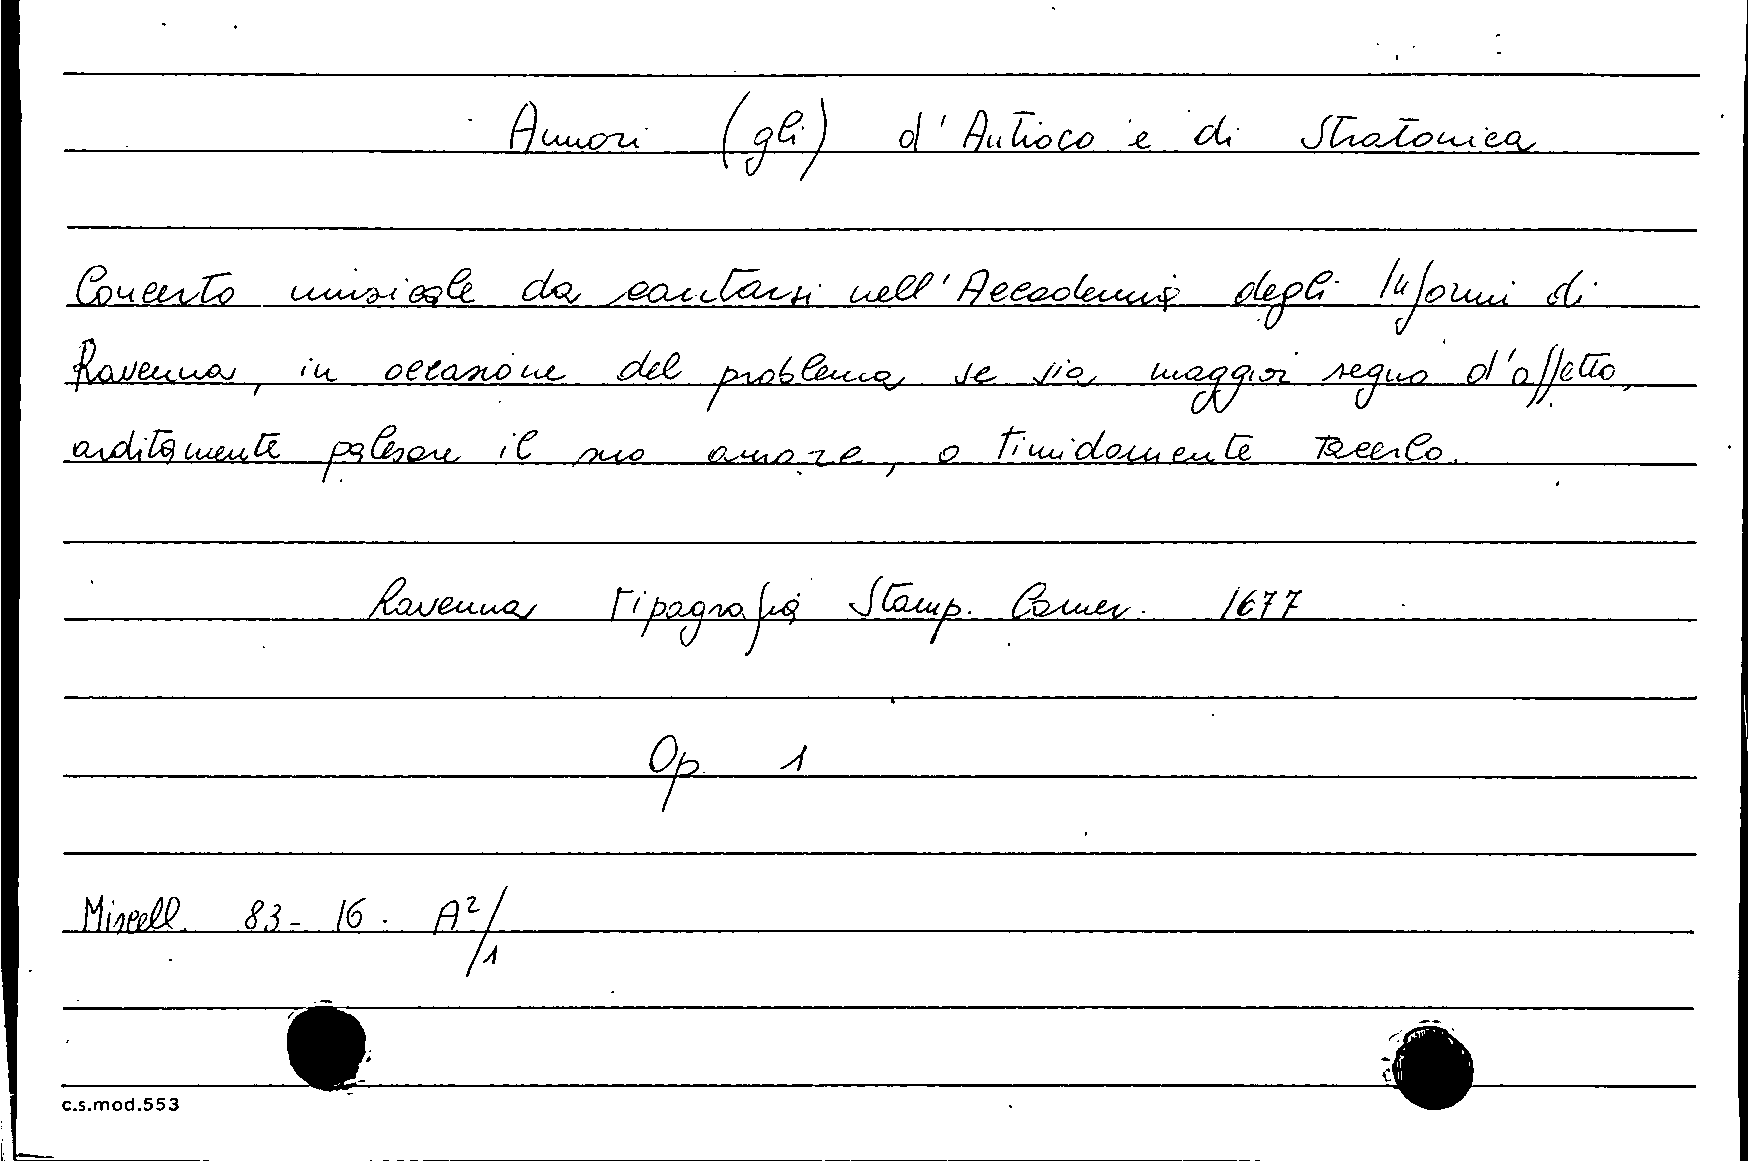 Amori (gli) d'Antioco e di Stratonica
Concerto musicale da cantarsi nell'Accademia degli Informi di
Ravenna, in occasione del problema se sia maggior segno d'affetto,
arditamente palesare il suo amore, o timidamente tacerlo.
Ravenna Tipografia Stamp. Camer. 1677
Op. 1
Miscell. 83-16. A²/1
c.s.mod.553